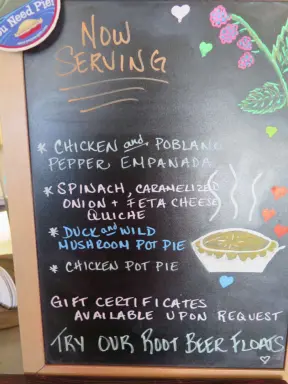 u Need Pie!
NOW
SERVING
* CHICKEN and POBLANO
PEPPER EMPANADA
* SPINACH, CARAMELIZED
ONION + FETA CHEESE
QUICHE
* DUCK and WILD
MUSHROOM POT PIE
* CHICKEN POT PIE
GIFT CERTIFICATES
AVAILABLE UPON REQUEST
TRY OUR ROOT BEER FLOATS